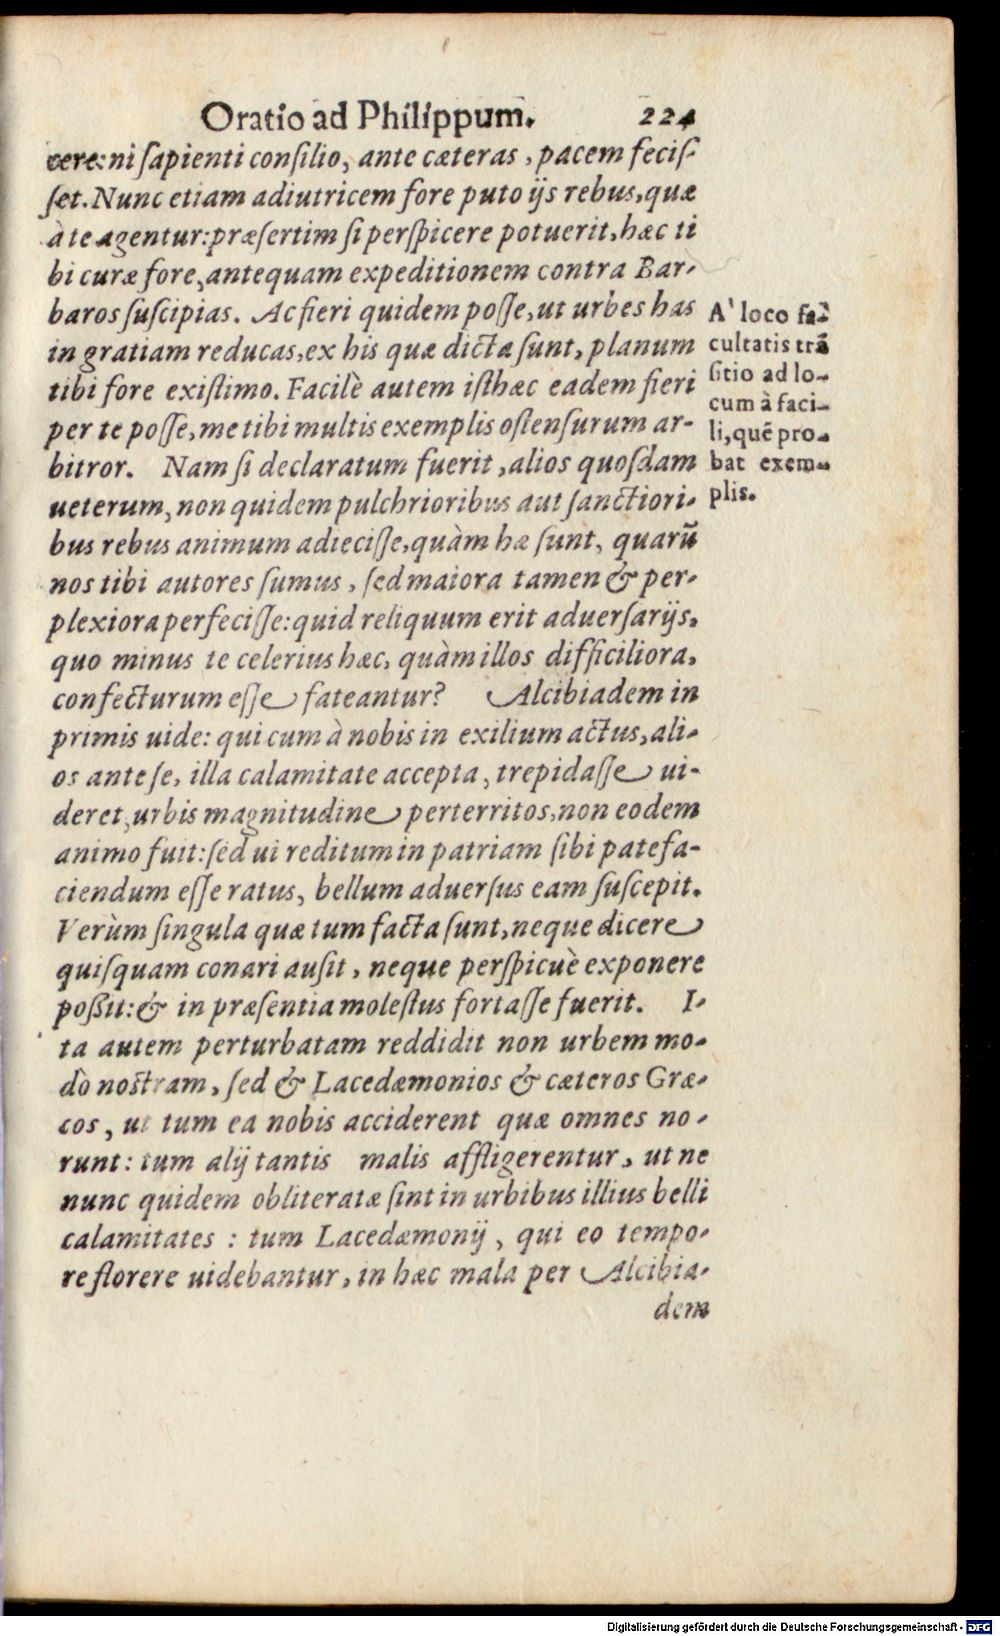 Oratio ad Philippum. 224
cere: ni sapienti consilio, ante cæteras, pacem fecis-
set. Nunc etiam adiutricem fore puto ijs rebus, quæ
à te agentur: præsertim si perspicere potuerit, hæc ti
bi curæ fore, antequam expeditionem contra Bar-
baros suscipias. Ac fieri quidem posse, ut urbes has
in gratiam reducas, ex his quæ dicta sunt, planum
tibi fore existimo. Facilè autem isthæc eadem fieri
per te posse, me tibi multis exemplis ostensurum ar-
bitror. Nam si declaratum fuerit, alios quosdam
ueterum, non quidem pulchrioribus aut sanctiori-
bus rebus animum adiecisse, quàm hæ sunt, quarũ
nos tibi autores sumus, sed maiora tamen & per-
plexiora perfecisse: quid reliquum erit aduersarijs,
quo minus te celerius hæc, quàm illos difficiliora,
confecturum esse fateantur? Alcibiadem in
primis uide: qui cum à nobis in exilium actus, ali-
os ante se, illa calamitate accepta, trepidasse ui-
deret, urbis magnitudine perterritos, non eodem
animo fuit: sed ui reditum in patriam sibi patefa-
ciendum esse ratus, bellum aduersus eam suscepit.
Verùm singula quæ tum facta sunt, neque dicere
quisquam conari ausit, neque perspicuè exponere
possit: & in præsentia molestus fortasse fuerit. I-
ta autem perturbatam reddidit non urbem mo-
dò nostram, sed & Lacedæmonios & cæteros Græ-
cos, ut tum ea nobis acciderent quæ omnes no-
runt: tum alij tantis malis affligerentur, ut ne
nunc quidem obliteratæ sint in urbibus illius belli
calamitates : tum Lacedæmonij, qui eo tempo-
re florere uidebantur, in hæc mala per Alcibia-
dem
A' loco fa-
cultatis trã
sitio ad lo-
cum à faci-
li, quẽ pro-
bat exem-
plis.
Digitalisierung gefördert durch die Deutsche Forschungsgemeinschaft - DFG